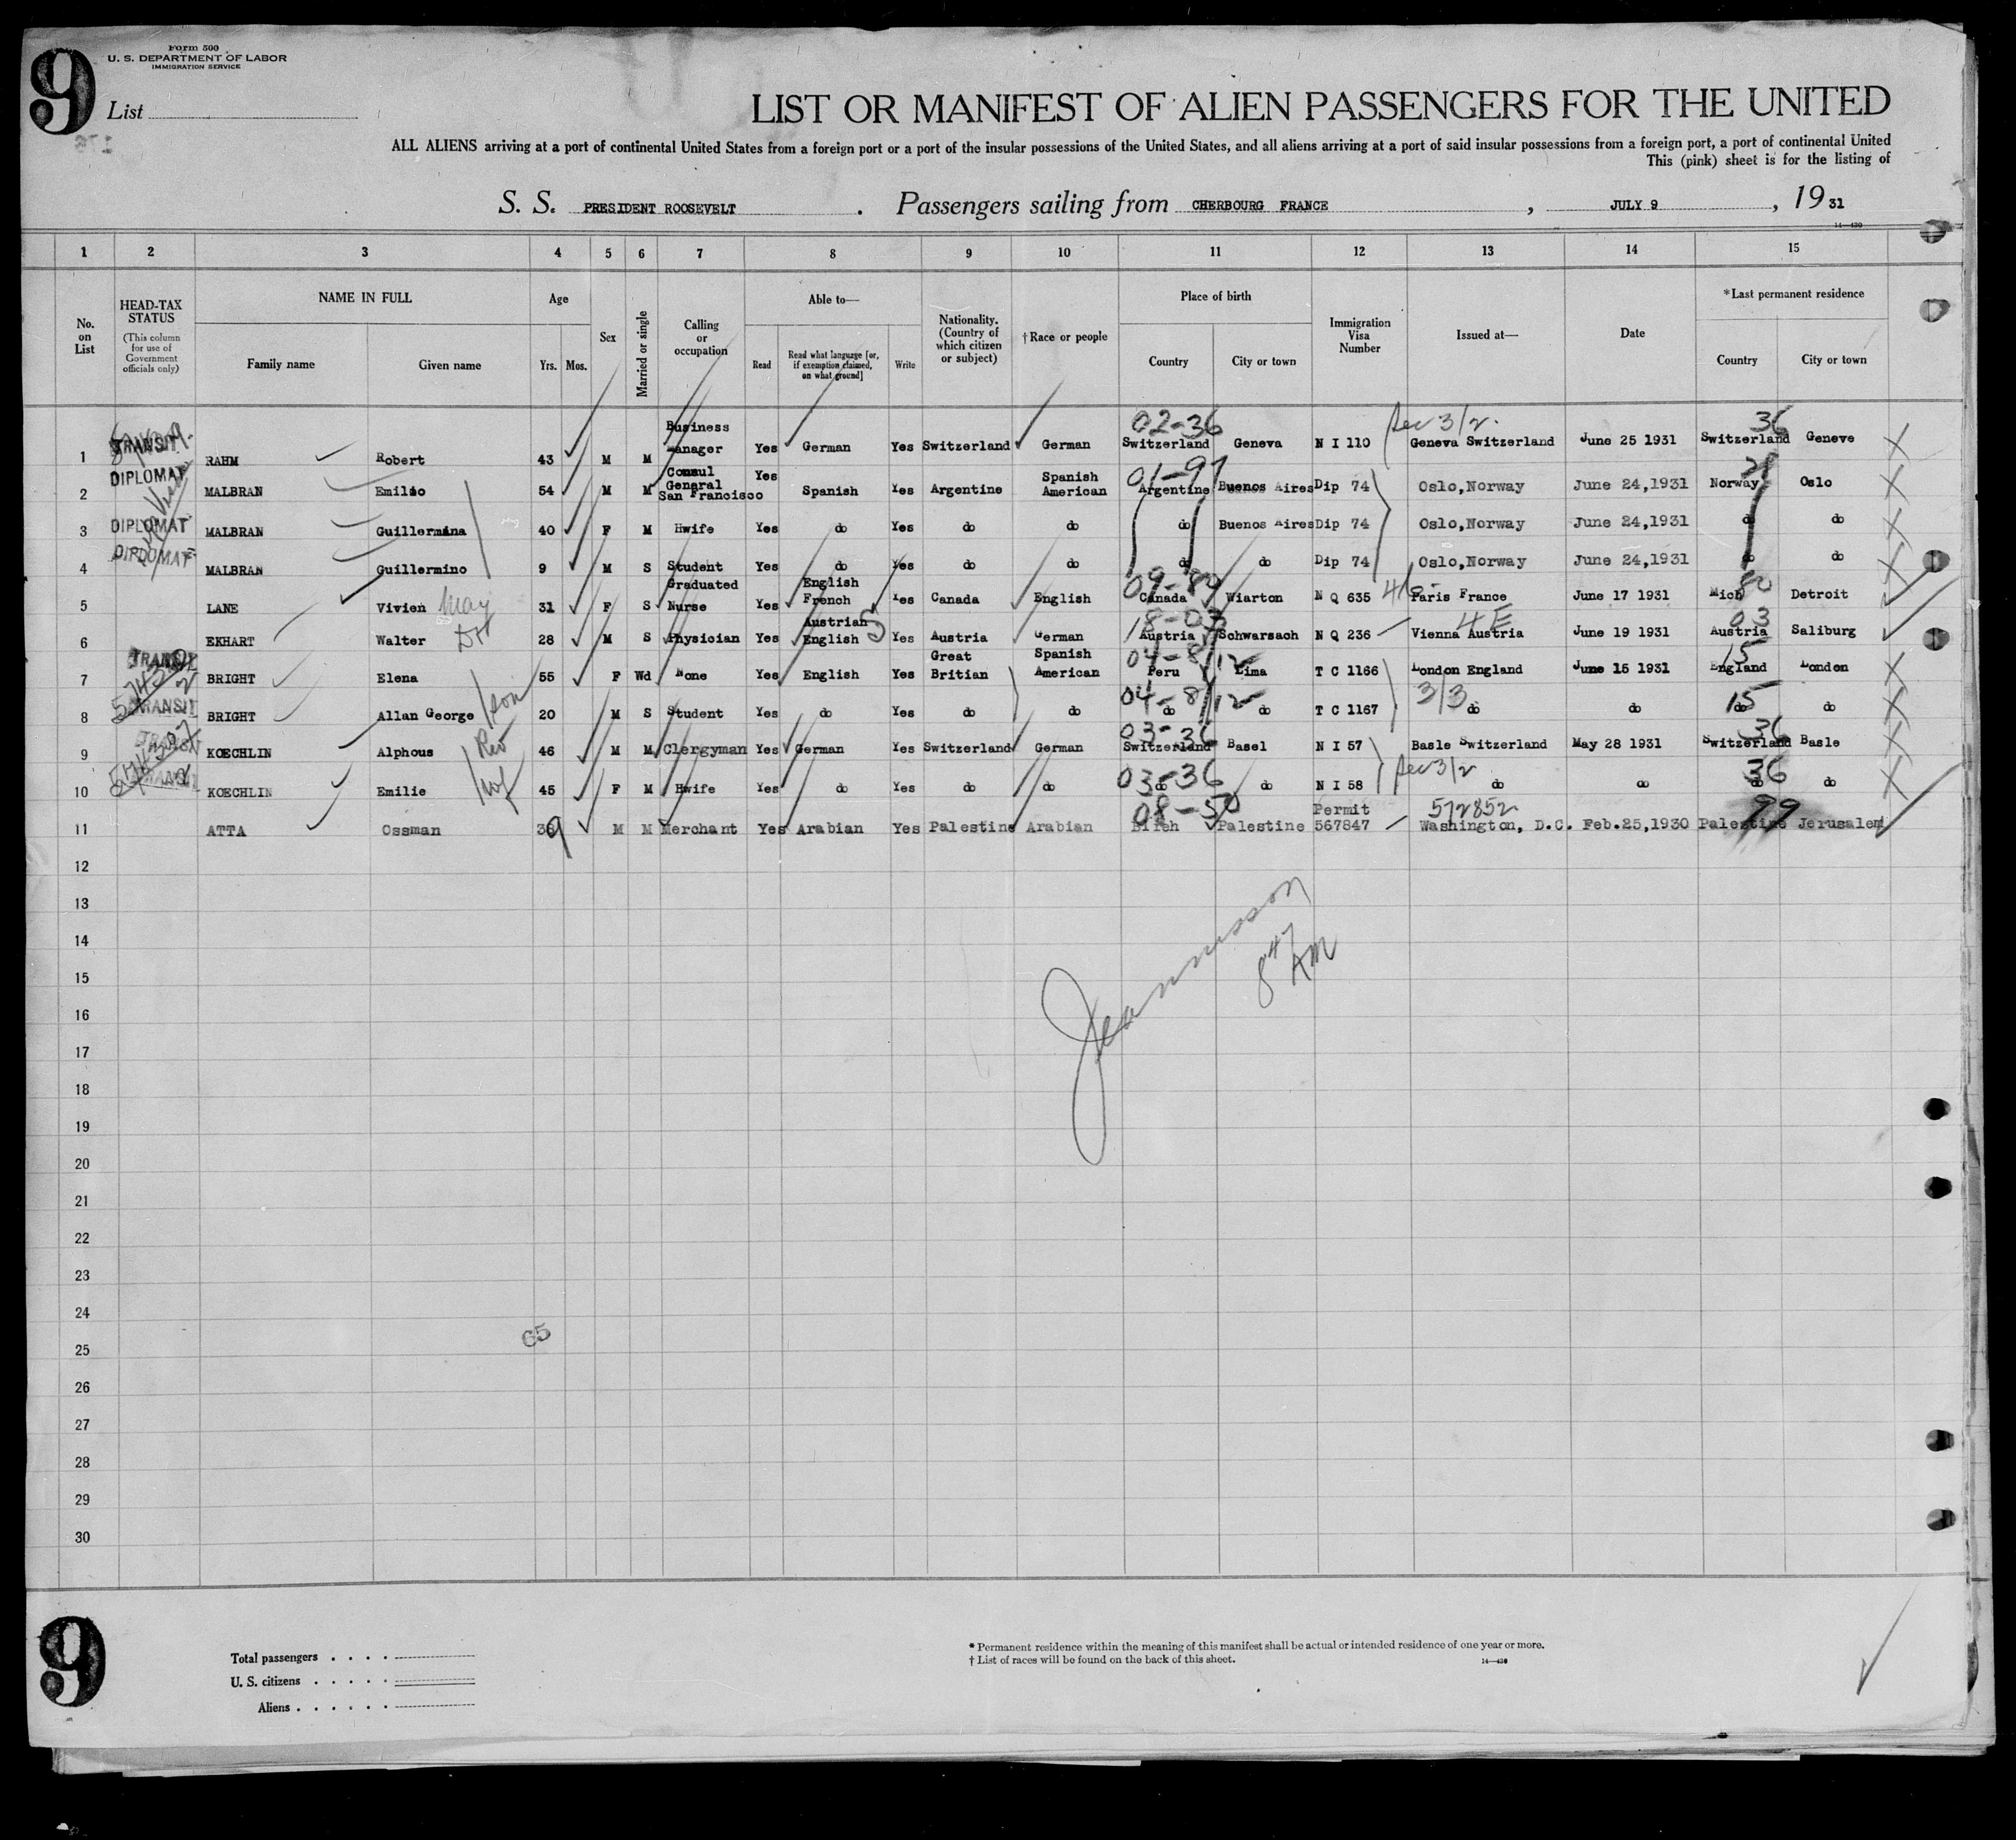 9
Form 500
U. S. DEPARTMENT OF LABOR
IMMIGRATION SERVICE
List
LIST OR MANIFEST OF ALIEN PASSENGERS FOR THE UNITED
ALL ALIENS arriving at a port of continental United States from a foreign port or a port of the insular possessions of the United States, and all aliens arriving at a port of said insular possessions from a foreign port, a port of continental United
This (pink) sheet is for the listing of
S. S. PRESIDENT ROOSEVELT. Passengers sailing from CHERBOURG FRANCE, JULY 9, 19 31
14—430
1 2 3 4 5 6 7 8 9 10 11 12 13 14 15
No. on List
HEAD-TAX STATUS (This column for use of Government officials only)
NAME IN FULL Family name Given name
Age Yrs. Mos.
Sex
Married or single
Calling or occupation
Able to— Read Read what language [or, if exemption claimed, on what ground] Write
Nationality. (Country of which citizen or subject)
†Race or people
Place of birth Country City or town
Immigration Visa Number
Issued at—
Date
*Last permanent residence Country City or town
02-36 Sec 3/2. 36
1 TRANSIT RAHM Robert 43 M M Business Manager Yes German Yes Switzerland German Switzerland Geneva N I 110 Geneva Switzerland June 25 1931 Switzerland Geneve
01-97
2 DIPLOMAT MALBRAN Emilio 54 M M Consul General San Francisco Yes Spanish Yes Argentine Spanish American Argentine Buenos Aires Dip 74 Oslo,Norway June 24,1931 Norway Oslo
3 DIPLOMAT MALBRAN Guillermina 40 F M Hwife Yes do Yes do do do Buenos Aires Dip 74 Oslo,Norway June 24,1931 do do
4 DIPLOMAT MALBRAN Guillermino 9 M S Student Yes do Yes do do do do Dip 74 Oslo,Norway June 24,1931 do do
5 LANE Vivien May 31 F S Graduated Nurse Yes English French Yes Canada English Canada Wiarton N Q 635 Paris France June 17 1931 Mich Detroit
18-03 4E 03
6 EKHART Walter 28 M S Physician Yes Austrian English Yes Austria German Austria Schwarsach N Q 236 Vienna Austria June 19 1931 Austria Saliburg
15
7 TRANSIT BRIGHT Elena 55 F Wd None Yes English Yes Great Britian Spanish American Peru Lima T C 1166 London England June 15 1931 England London
04-81/12 3/3 15
8 TRANSIT BRIGHT Allan George son 20 M S Student Yes do Yes do do do do T C 1167 do do do do
03-36 36
9 TRANSIT KOECHLIN Alphous Rev 46 M M Clergyman Yes German Yes Switzerland German Switzerland Basel N I 57 Basle Switzerland May 28 1931 Switzerland Basle
03-36 Sec 3/2 36
10 TRANSIT KOECHLIN Emilie wf 45 F M Hwife Yes do Yes do do do do N I 58 do do do do
08-50 572852 99
11 ATTA Ossman 39 M M Merchant Yes Arabian Yes Palestine Arabian Bireh Palestine Permit 567847 Washington, D.C. Feb.25,1930 Palestine Jerusalem
12
13
14
15
16
17
18
19
20
21
22
23
24
25
26
27
28
29
30
8 47 AM
65
9
Total passengers
U. S. citizens
Aliens
* Permanent residence within the meaning of this manifest shall be actual or intended residence of one year or more.
† List of races will be found on the back of this sheet.
14—430